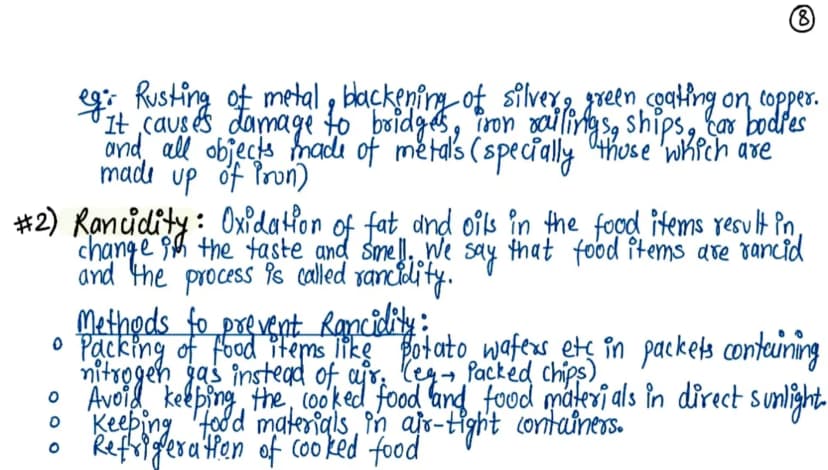 8
eg:- Rusting of metal, blackening of silver, green coating on copper.
It causes damage to bridges, iron railings, ships, car bodies
and all objects made of metals (specially those which are
made up of iron)
#2) Rancidity: Oxidation of fat and oils in the food items result in
change in the taste and smell. We say that food items are rancid
and the process is called rancidity.
Methods to prevent Rancidity:
o Packing of food items like Potato wafers etc in packets containing
nitrogen gas instead of air. (eg → Packed chips)
o Avoid keeping the cooked food and food materials in direct sunlight.
o Keeping food materials in air-tight containers.
o Refrigeration of cooked food